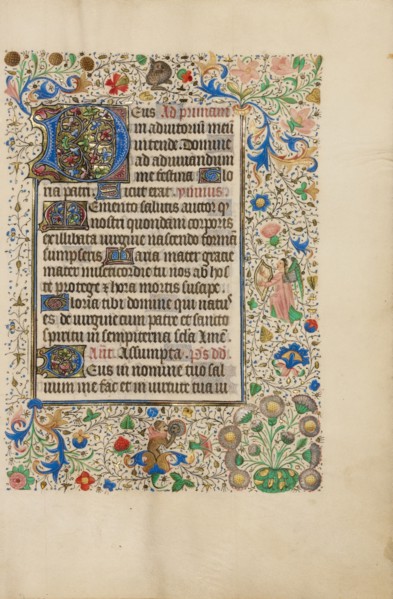 Deus Ad primam
in adiutoriū meū
intende. Domine
ad adiuuandum
me festina. Glo
ria patri. Sicut erat. Ymnus.
Memento salutis auctor q
nostri quondam corporis
ex illibata uirgine nascendo formā
sumpseris. Maria mater gracie
mater misericordie tu nos ab hos
te protege & hora mortis suscipe.
Gloria tibi domine qui natus
es de uirgine cum patre et sancto
spiritu in sempiterna secla Amē.
Ant. Assumpta. Ps dd
Deus in nomine tuo sal
uum me fac et in uirtute tua iu